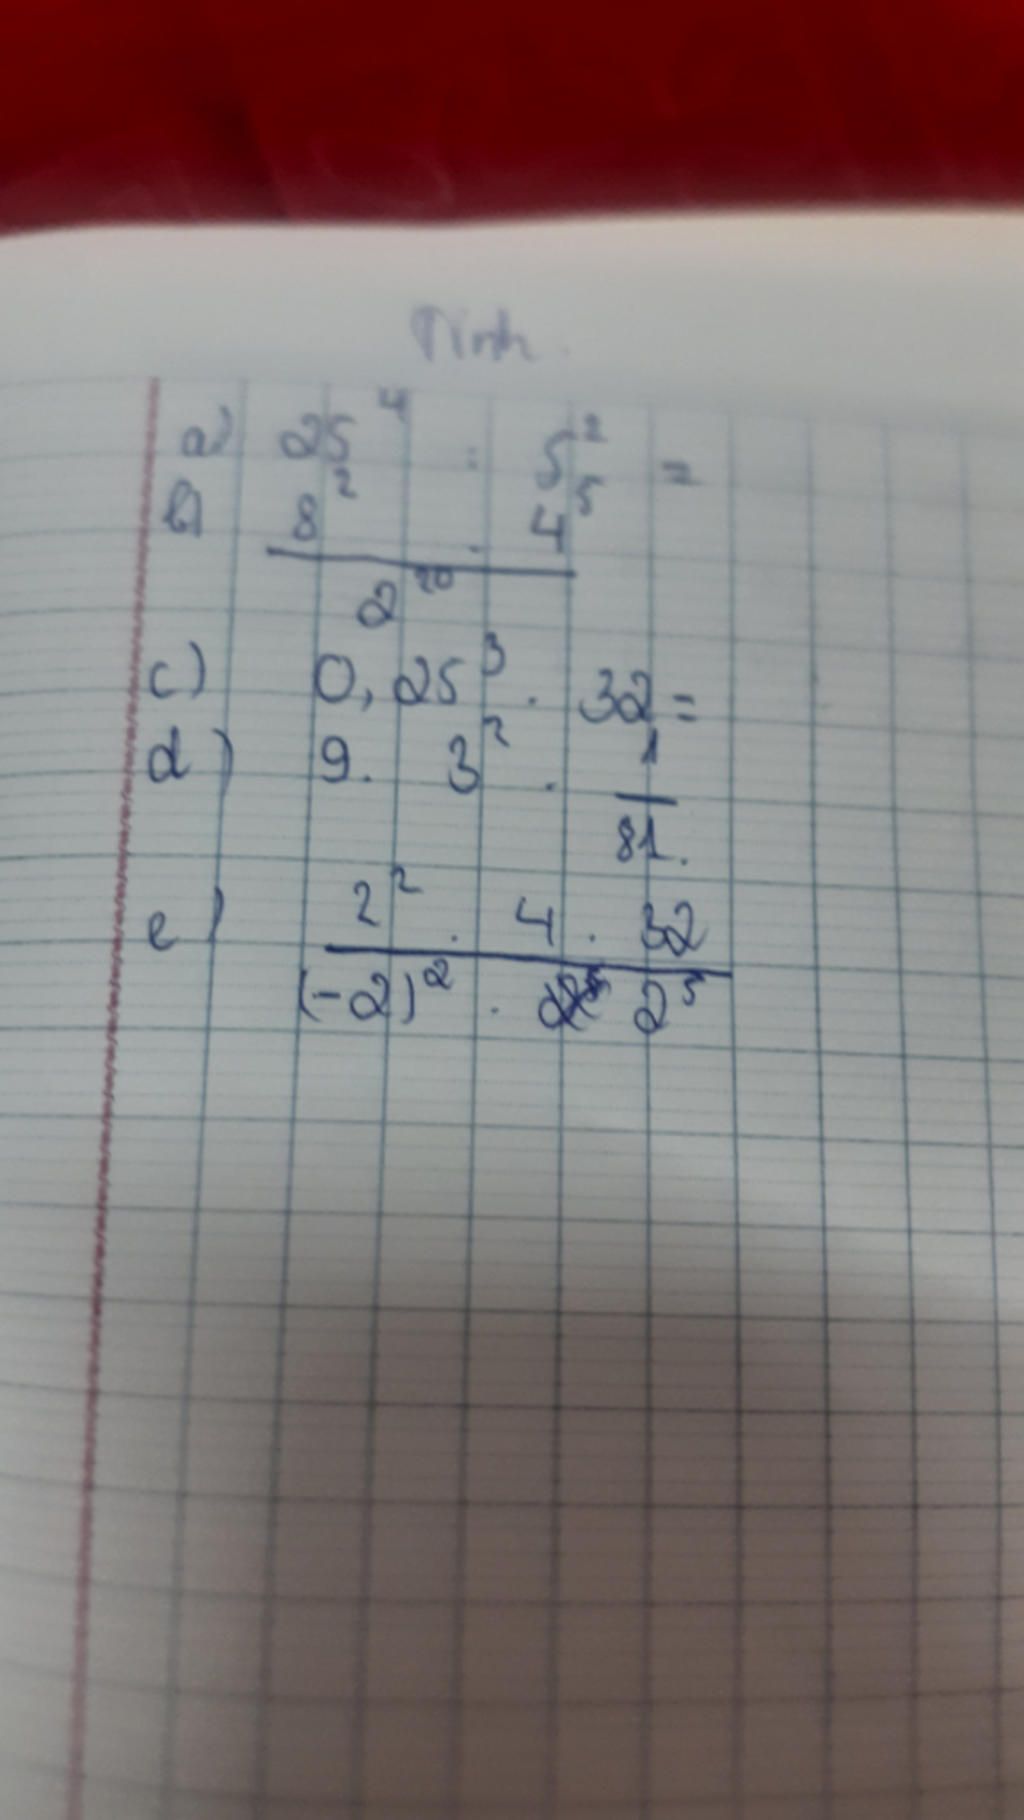 Tính.
a) 25⁴ : 5² =
b) 8² . 4⁵
2²⁰
c) 0,25³ . 32 =
d) 9. 3² . 1
81.
e) 2² . 4 . 32
(-2)² . 2⁵